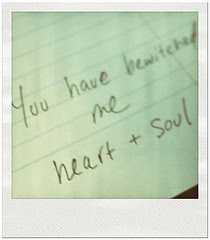 You have bewitched
me
heart + soul